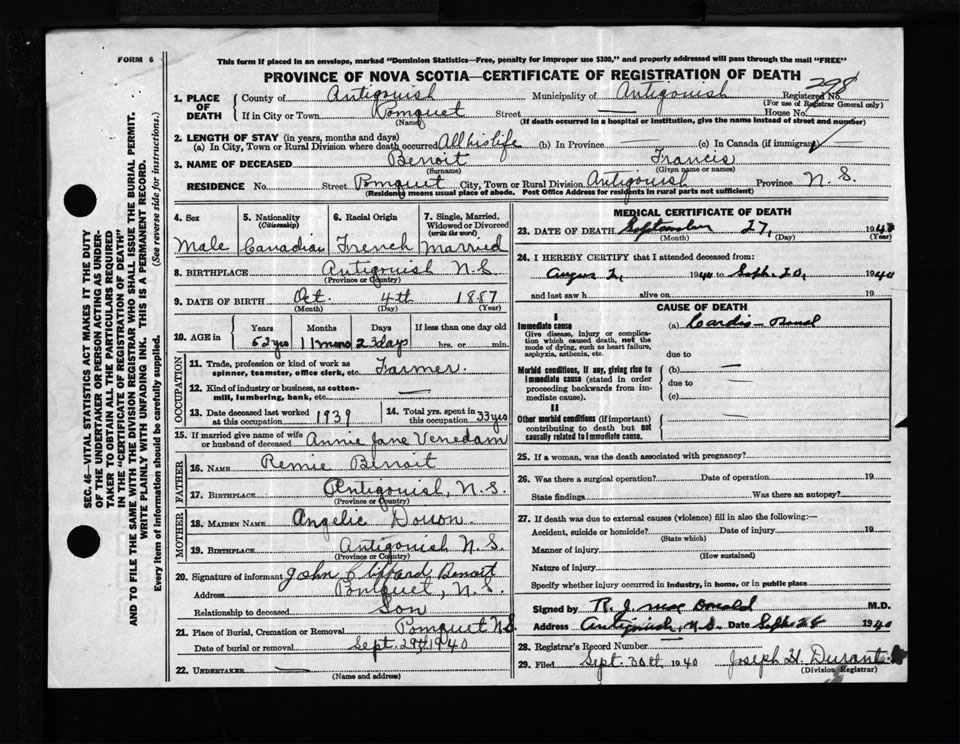 FORM 6
This form if placed in an envelope, marked "Dominion Statistics—Free, penalty for improper use $300," and properly addressed will pass through the mail "FREE"
PROVINCE OF NOVA SCOTIA—CERTIFICATE OF REGISTRATION OF DEATH
398
1. PLACE OF DEATH
County of Antigonish Municipality of Antigonish Registered No.
(For use of Registrar General only)
If in City or Town Pomquet Street House No.
(Name) (If death occurred in a hospital or institution, give the name instead of street and number)
2. LENGTH OF STAY (in years, months and days)
(a) In City, Town or Rural Division where death occurred All his life (b) In Province — (c) In Canada (if immigrant) —
3. NAME OF DECEASED Benoit Francis
(Surname) (Given name or names)
RESIDENCE No. Street Pomquet City, Town or Rural Division Antigonish Province N. S.
(Residence means usual place of abode. Post Office Address for residents in rural parts not sufficient)
SEC. 46—VITAL STATISTICS ACT MAKES IT THE DUTY
OF THE UNDERTAKER OR PERSON ACTING AS UNDER-
TAKER TO OBTAIN ALL THE PARTICULARS REQUIRED
IN THE "CERTIFICATE OF REGISTRATION OF DEATH"
AND TO FILE THE SAME WITH THE DIVISION REGISTRAR WHO SHALL ISSUE THE BURIAL PERMIT.
WRITE PLAINLY WITH UNFADING INK. THIS IS A PERMANENT RECORD.
Every item of information should be carefully supplied. (See reverse side for instructions.)
4. Sex 5. Nationality (Citizenship) 6. Racial Origin 7. Single, Married, Widowed or Divorced (write the word)
Male Canadian French Married
8. BIRTHPLACE Antigonish N.S
(Province or Country)
9. DATE OF BIRTH Oct. 4th 1887
(Month) (Day) (Year)
10. AGE in Years Months Days If less than one day old
52 yrs 11 mons 23 days hrs. or min.
OCCUPATION
11. Trade, profession or kind of work as
spinner, teamster, office clerk, etc. Farmer.
12. Kind of industry or business, as cotton-
mill, lumbering, bank, etc. —
13. Date deceased last worked at this occupation 1939 14. Total yrs. spent in this occupation 33 yrs
15. If married give name of wife
or husband of deceased Annie Jane Venedam
FATHER
16. NAME Remie Benoit
17. BIRTHPLACE Antigonish, N.S.
(Province or Country)
MOTHER
18. MAIDEN NAME Angelic
19. BIRTHPLACE Antigonish N.S.
(Province or Country)
20. Signature of informant John Clifford Benoit
Address Pomquet, N.S.
Relationship to deceased Son
21. Place of Burial, Cremation or Removal Pomquet N.S.
Date of burial or removal Sept. 29th 1940
22. UNDERTAKER —
(Name and address)
MEDICAL CERTIFICATE OF DEATH
23. DATE OF DEATH September 27, 1940
(Month) (Day) (Year)
24. I HEREBY CERTIFY that I attended deceased from:
1940 to Sept. 20, 1940
and last saw h alive on 19
CAUSE OF DEATH
I
Immediate cause
Give disease, injury or complica-
tion which caused death, not the
mode of dying, such as heart failure,
asphyxia, asthenia, etc.
(a) Cardio-Renal
due to
Morbid conditions, if any, giving rise to
immediate cause (stated in order
proceeding backwards from im-
mediate cause).
(b) —
due to —
(c)
II
Other morbid conditions (if important)
contributing to death but not
causally related to immediate cause.
25. If a woman, was the death associated with pregnancy?
26. Was there a surgical operation? Date of operation 19
State findings Was there an autopsy?
27. If death was due to external causes (violence) fill in also the following:—
Accident, suicide or homicide? Date of injury 19
(State which)
Manner of injury
(How sustained)
Nature of injury
Specify whether injury occurred in industry, in home, or in public place
Signed by R. J. Mac Donald M.D.
Address Antigonish, N.S. Date Sept. 28 1940
28. Registrar's Record Number
29. Filed Sept. 30th 1940 Joseph H. Durant
(Division Registrar)